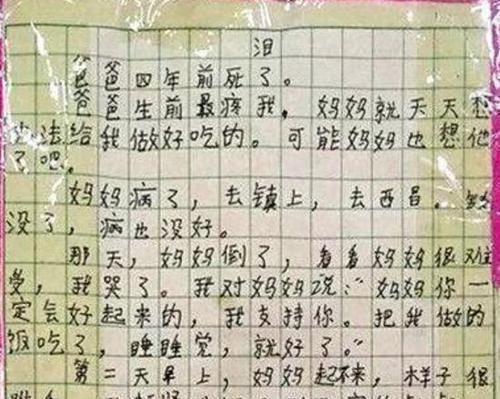 泪
爸爸四年前死了。
爸爸生前最疼我，妈妈就天天想
办法给我做好吃的。可能妈妈也想他
了吧。
妈妈病了，去镇上，去西昌。钱
没了，病也没好。
那天，妈妈倒了，看看妈妈很难
受，我哭了。我对妈妈说：“妈妈你一
定会好起来的，我支持你。把我做的
饭吃了，睡睡觉，就好了。”
第二天早上，妈妈起不来，样子很